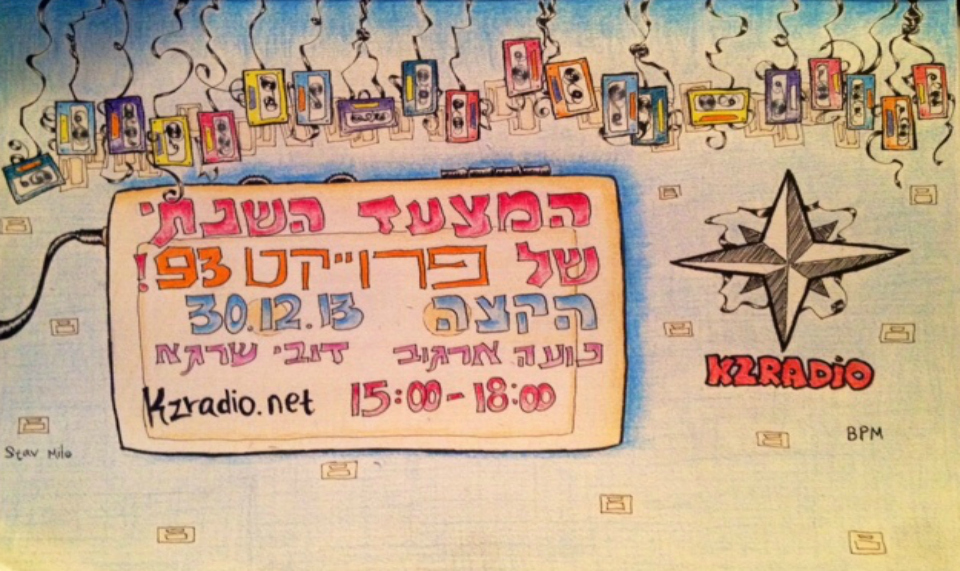 המצעד השנתי
של פרוייקט 93!
הקצה 30.12.13
נועה ארגוב דובי שרגא
Kzradio.net 15:00-18:00
KZRADIO
BPM
Stav Milo